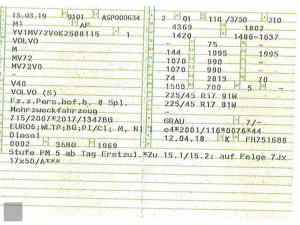 15.03.19 0101 ASP000634 2 01 110 /3750 210
M1 AF 4369 1802
YV1MV72V0K2508115 1 1420 1486-1637
VOLVO - 75 -
M 144 1995 1995
MV72 1070 990 -
MV72V0 1070 990 -
- 74 2019 70
V40 1500 700 5 -
VOLVO (S) 225/45 R17 91W
Fz.z.Pers.bef.b. 8 Spl. 225/45 R17 91W
Mehrzweckfahrzeug -
715/2007*2017/1347DG GRAU 7/-
EURO6;WLTP;BG;PI/CI; M, N1 I e4*2001/116*0076*44
Diesel 12.04.18 K FH751688
0002 36B0 1969
Stufe PM 5 ab Tag Erstzul.*Zu 15.1/15.2: auf Felge 7Jx
17x50/A***